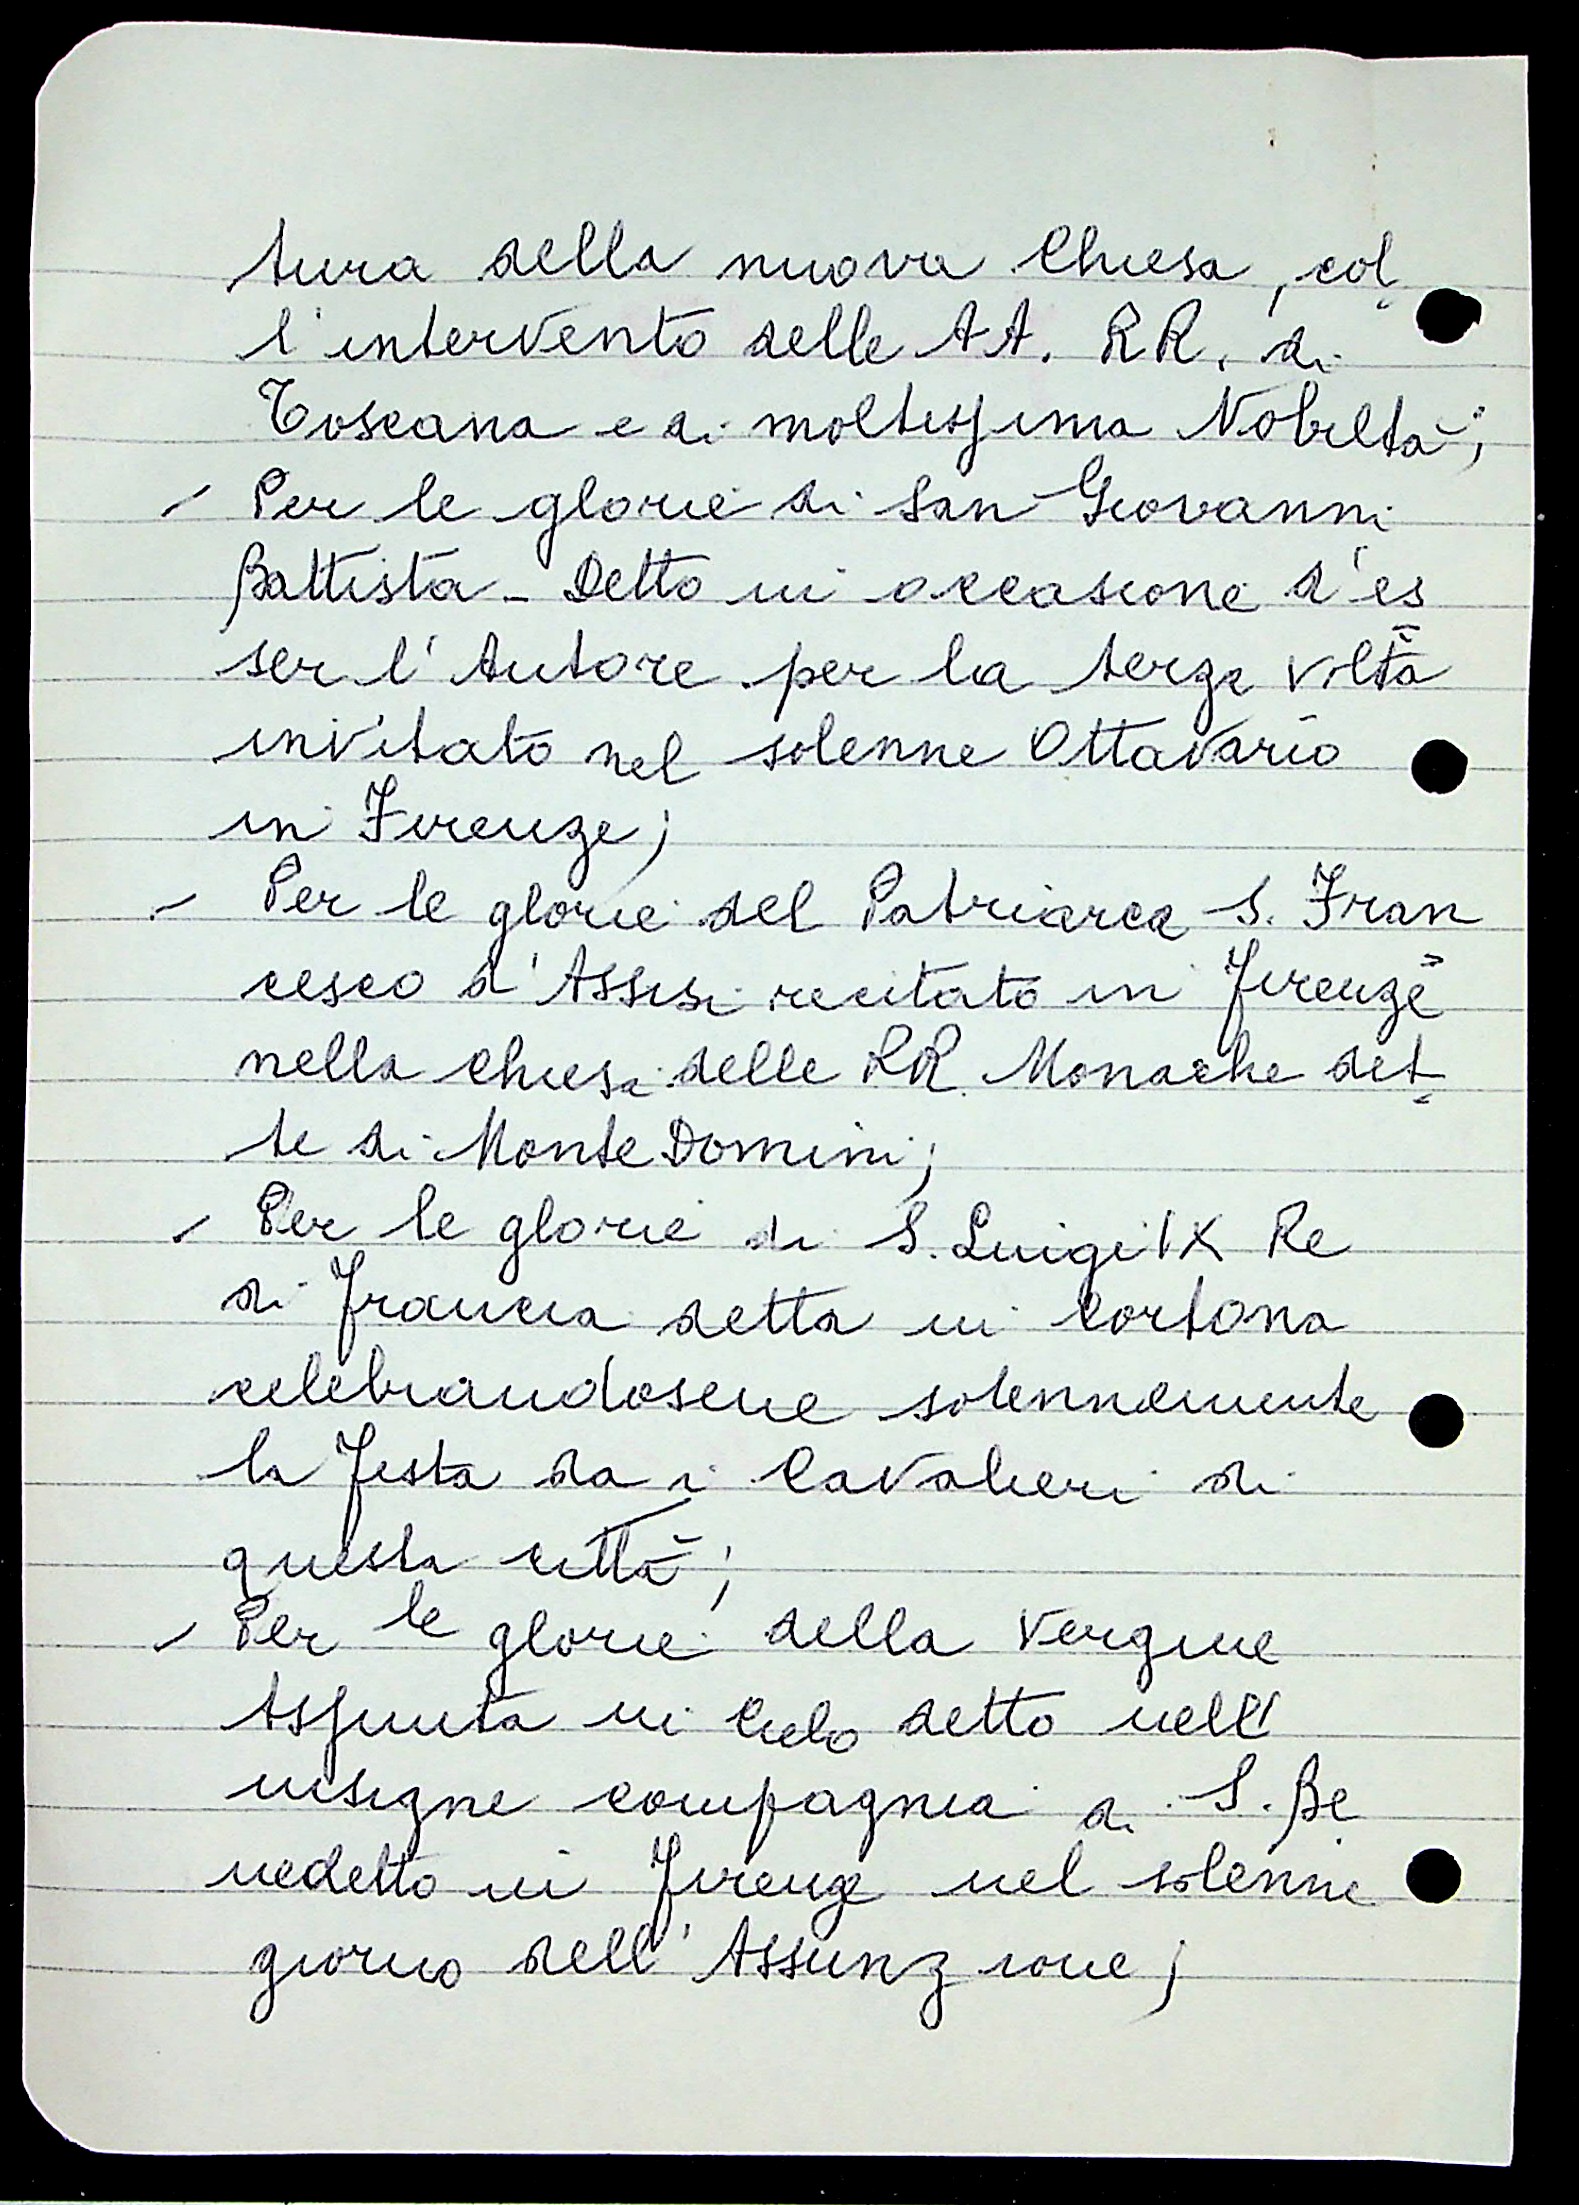 tura della nuova Chiesa, col
l'intervento delle AA. RR. di
Toscana e di moltissima Nobiltà;
- Per le glorie di San Giovanni
Battista - Detto in occasione d'es
ser l'Autore per la terza volta
invitato nel solenne Ottavario
in Firenze;
- Per le glorie del Patriarca S. Fran
cesco d'Assisi recitato in Firenze
nella chiesa delle RR. Monache det
te di Monte Domini;
- Per le glorie di S. Luigi IX Re
di Francia detta in Cortona
celebrandosene solennemente
la Festa da i Cavalieri di
questa città;
- Per le glorie della Vergine
Assunta in Cielo detto nell'
insigne compagnia di S. Be
nedetto in Firenze nel solenne
giorno dell'Assunzione;